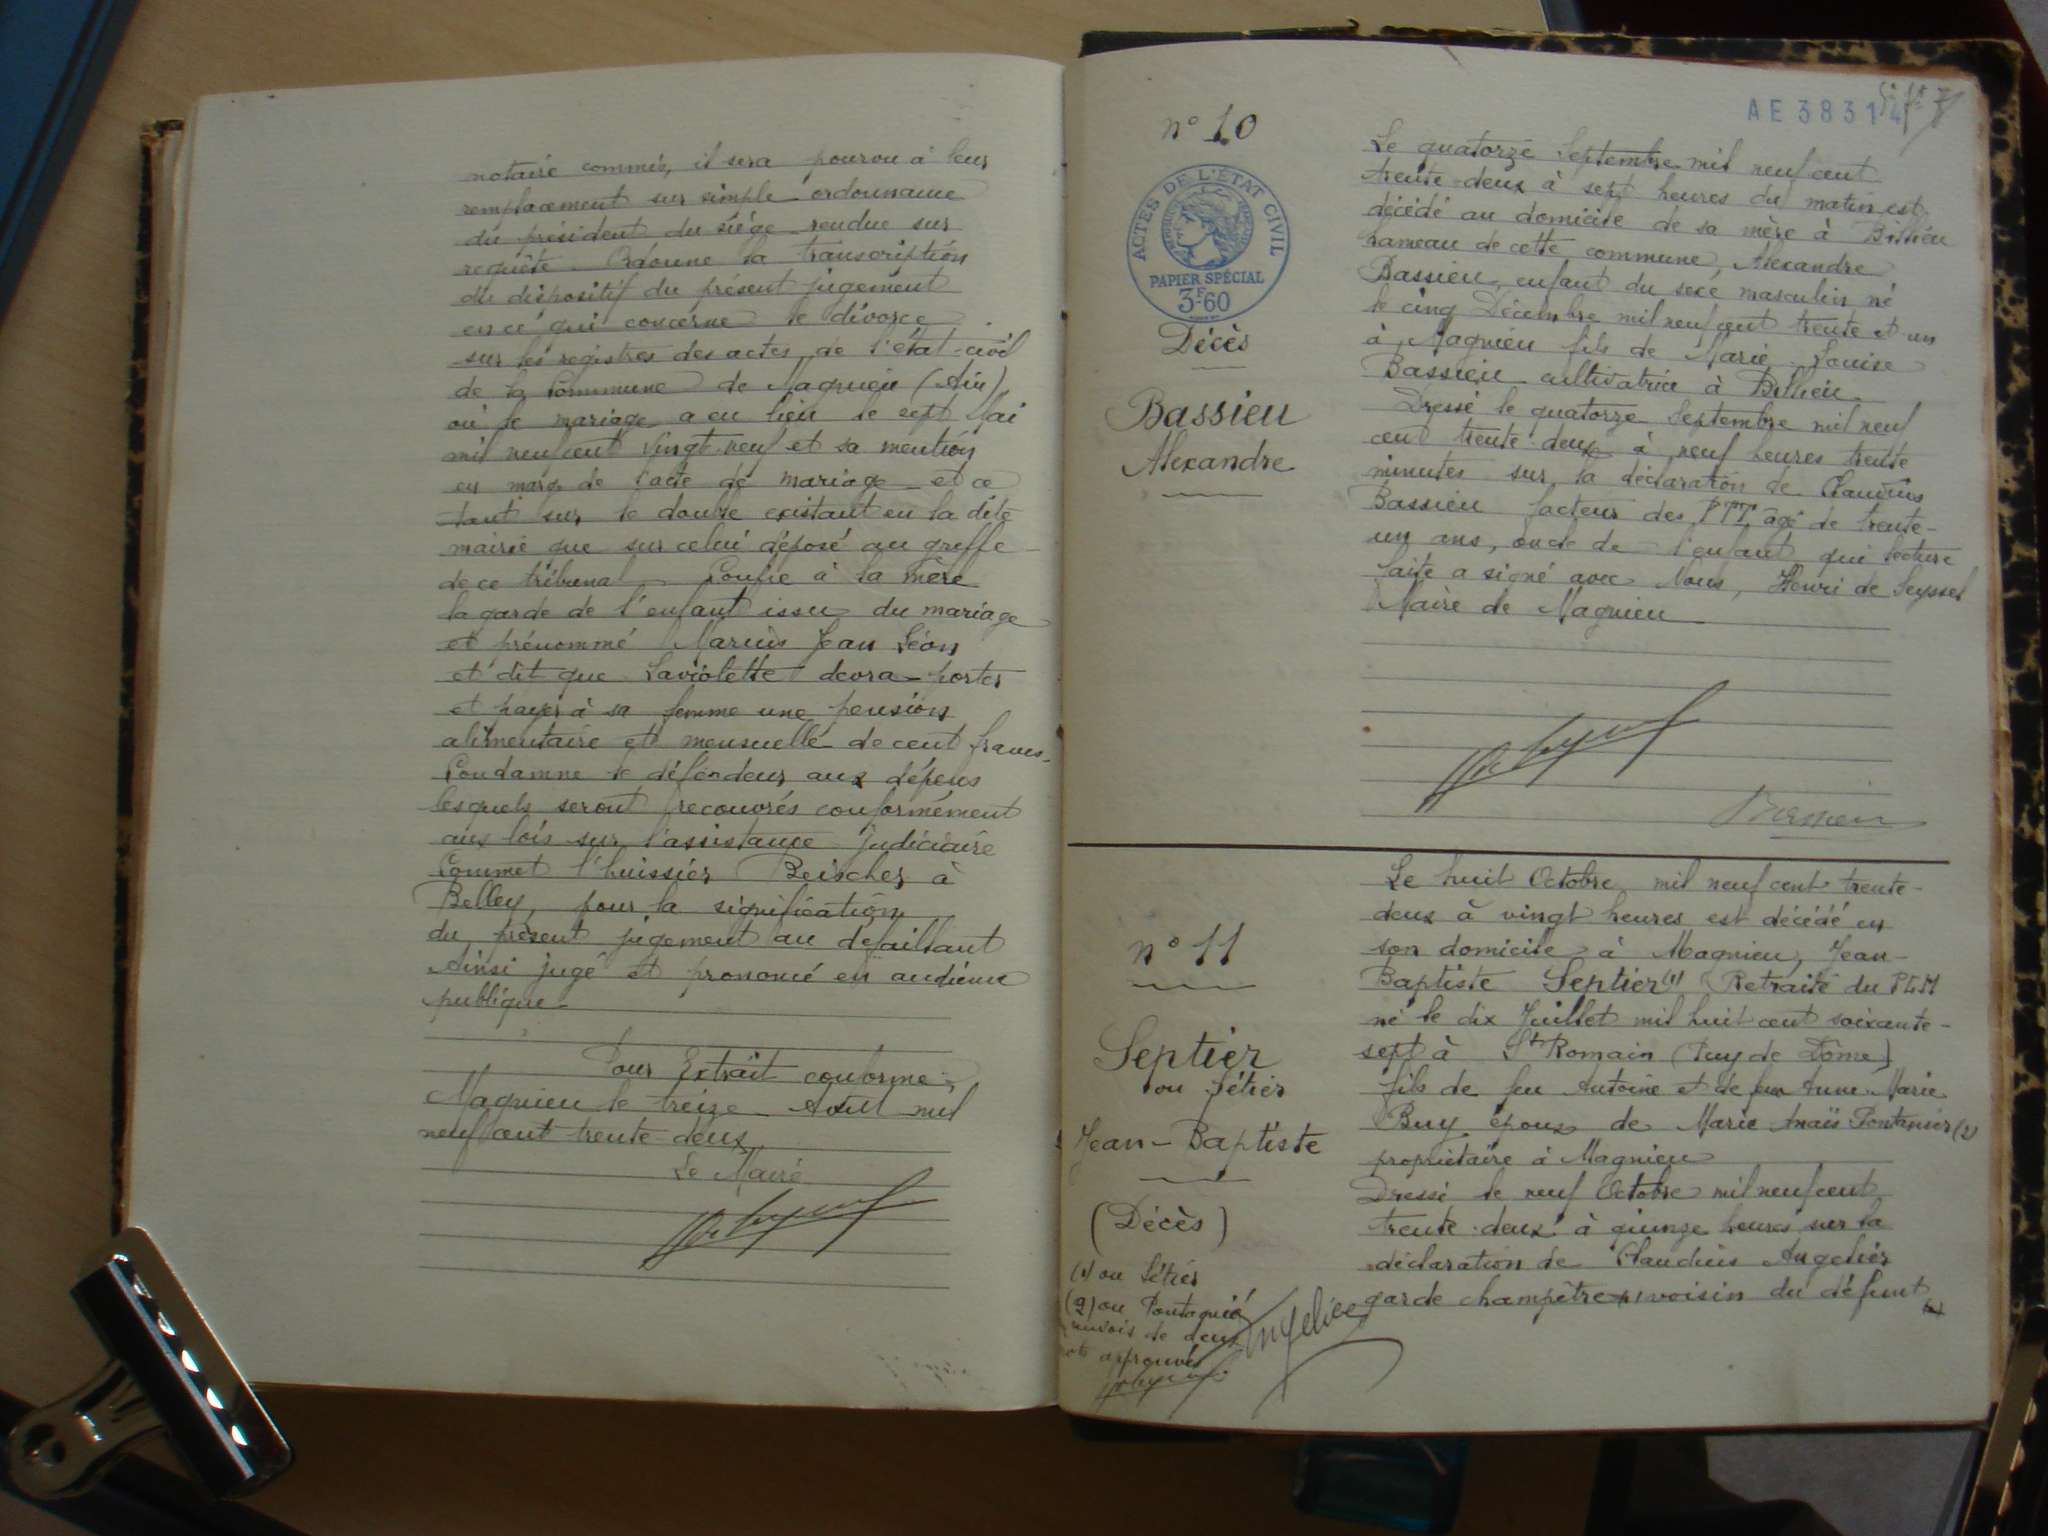 notaire commis, il sera pourvu à leur
remplacement sur simple ordonnance
du président du siège rendue sur
requête. Ordonne la transcription
du dispositif du présent jugement
en ce qui concerne le divorce
sur les registres des actes de l'état-civil
de la Commune de Magnieu (Ain)
où le mariage a eu lieu le sept Mai
mil neuf cent vingt-neuf et sa mention
en marge de l'acte de mariage et ce
tant sur le double existant en la dite
mairie que sur celui déposé au greffe
de ce tribunal. Confie à la mère
la garde de l'enfant issu du mariage
et prénommé Marius Jean Léon
et dit que Laviolette devra porter
et payer à sa femme une pension
alimentaire et mensuelle de cent francs.
Condamne le défendeur aux dépens
lesquels seront recouvrés conformément
aux lois sur l'assistance judiciaire
Commet l'huissier Beischer à
Belley, pour la signification
du présent jugement au défaillant
Ainsi jugé et prononcé en audience
publique
Pour Extrait conforme,
Magnieu le treize Août mil
neuf cent trente-deux
Le Maire
AE 38314
n° 10
ACTES DE L'ÉTAT CIVIL
PAPIER SPÉCIAL
3F60
Décès
Bassieu
Alexandre
Le quatorze Septembre mil neuf cent
trente-deux à sept heures du matin est
décédé au domicile de sa mère à Billieu
hameau de cette commune, Alexandre
Bassieu, enfant du sexe masculin né
le cinq Décembre mil neuf cent trente et un
à Magnieu fils de Marie-Louise
Bassieu cultivatrice à Billieu.
Dressé le quatorze Septembre mil neuf
cent trente-deux à neuf heures trente
minutes sur la déclaration de Claudius
Bassieu facteur des PTT, âgé de trente-
un ans, oncle de l'enfant qui lecture
faite a signé avec Nous, Henri de Seyssel
Maire de Magnieu
Bassieu
n° 11
Septier
ou Sétier
Jean-Baptiste
(Décès)
(1) ou Sétier
(2) ou Pontagnié
renvois de deux
mots approuvés
Le huit Octobre mil neuf cent trente-
deux à vingt heures est décédé en
son domicile à Magnieu, Jean-
Baptiste Septier (1) Retraité du PLM
né le dix Juillet mil huit cent soixante-
sept à St Romain (Puy de Dôme)
fils de feu Antoine et de feu Anne-Marie
Buy époux de Marie Anaïs Fontanier (2)
propriétaire à Magnieu
Dressé le neuf Octobre mil neuf cent
trente-deux à quinze heures sur la
déclaration de Claudius Angelier
garde champêtre voisin du défunt
Angelier